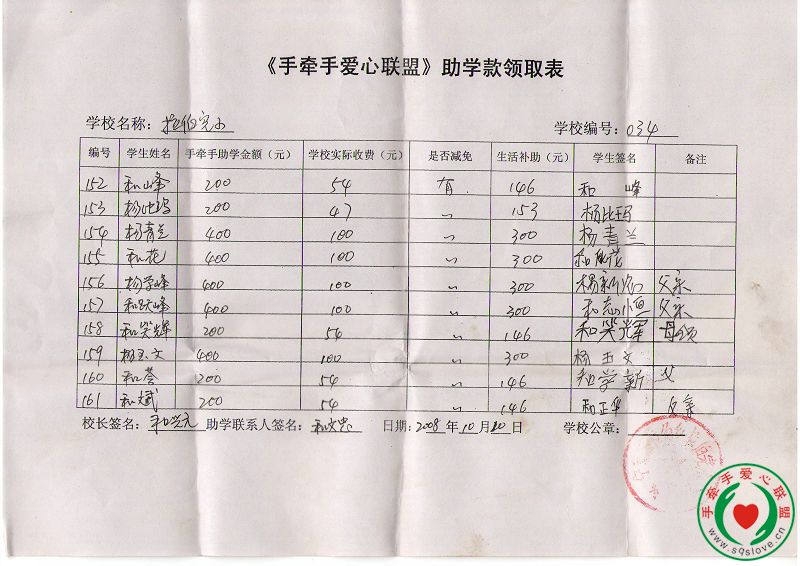 《手牵手爱心联盟》助学款领取表
学校名称： 拉伯完小 学校编号： 034
编号 学生姓名 手牵手助学金额（元） 学校实际收费（元） 是否减免 生活补助（元） 学生签名 备注
152 和峰 200 54 有 146 和 峰
153 杨比玛 200 47 〃 153 杨比玛
154 杨青兰 400 100 〃 300 杨青兰
155 和花 400 100 〃 300
156 杨学峰 400 100 〃 300 父亲
157 和跃峰 400 100 〃 300 和志恒 父亲
158 和学辉 200 54 〃 146
159 杨玉文 400 100 〃 300 杨玉文
160 和荟 200 54 〃 146 和学新 父
161 和斌 200 54 〃 146 和正华 父亲
校长签名： 助学联系人签名： 和文忠 日期： 2008 年 10 月 20 日 学校公章：
手牵手爱心联盟
www.sqslove.cn